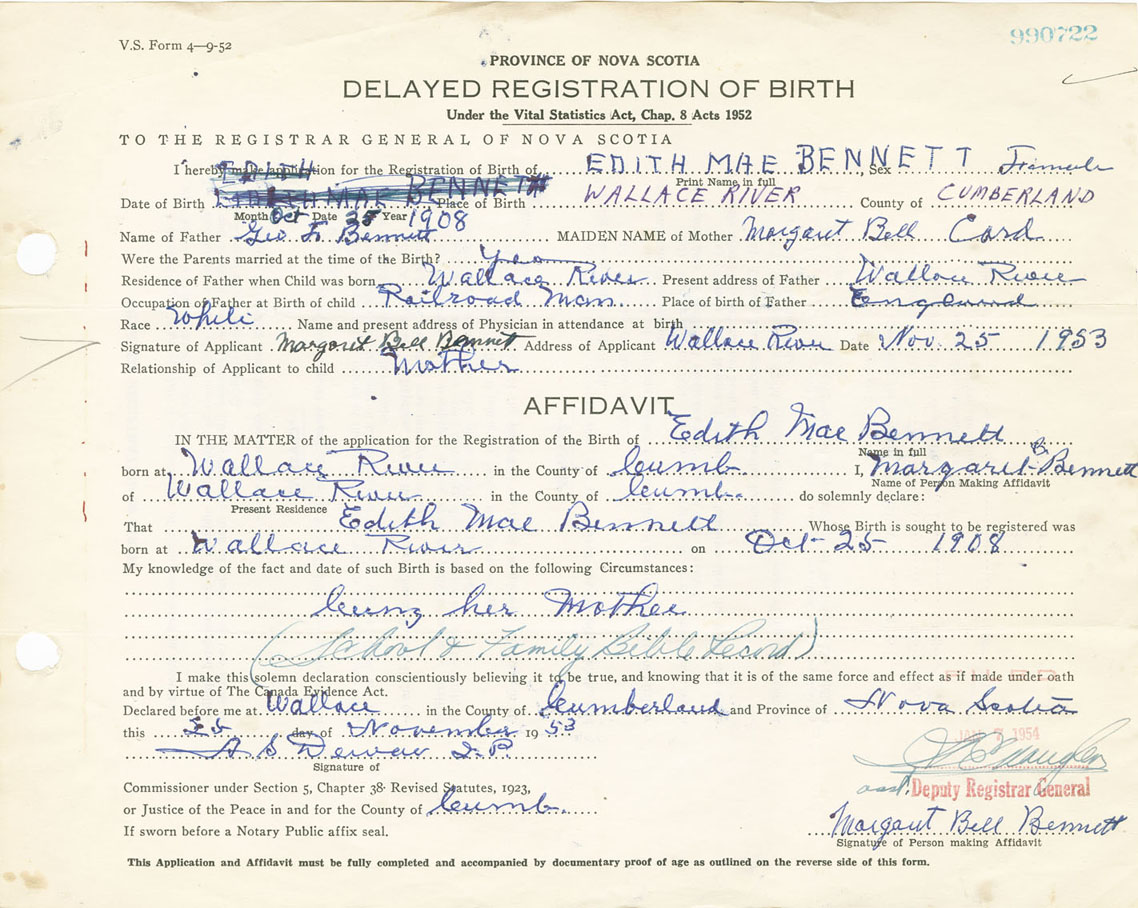 V.S. Form 4—9-52
990722
PROVINCE OF NOVA SCOTIA
DELAYED REGISTRATION OF BIRTH
Under the Vital Statistics Act, Chap. 8 Acts 1952
TO THE REGISTRAR GENERAL OF NOVA SCOTIA
I hereby make application for the Registration of Birth of EDITH MAE BENNETT, Sex Female
EDITH
Print Name in full
Date of Birth EDITH MAE BENNETT Place of Birth WALLACE RIVER County of CUMBERLAND
Month Oct Date 25 Year 1908
Name of Father Geo F. Bennett MAIDEN NAME of Mother Margaret Bell Card
Were the Parents married at the time of the Birth? Yes
Residence of Father when Child was born Wallace River Present address of Father Wallace River
Occupation of Father at Birth of child Railroad Man Place of birth of Father England
Race White Name and present address of Physician in attendance at birth
Signature of Applicant Margaret Bell Bennett Address of Applicant Wallace River Date Nov. 25 1953
Relationship of Applicant to child Mother
AFFIDAVIT
IN THE MATTER of the application for the Registration of the Birth of Edith Mae Bennett
Name in full
born at Wallace River in the County of Cumb. I, Margaret B Bennett
Name of Person Making Affidavit
of Wallace River in the County of Cumb. do solemnly declare:
Present Residence
That Edith Mae Bennett Whose Birth is sought to be registered was
born at Wallace River on Oct 25 1908
My knowledge of the fact and date of such Birth is based on the following Circumstances:
her Mother
(School & Family Bible Record)
I make this solemn declaration conscientiously believing it to be true, and knowing that it is of the same force and effect as if made under oath
and by virtue of The Canada Evidence Act.
Declared before me at Wallace in the County of Cumberland and Province of Nova Scotia
this 25 day of November 1953
JAN 1954
A S Dewar J.P.
Signature of
Commissioner under Section 5, Chapter 38 Revised Statutes, 1923,
asst. Deputy Registrar General
or Justice of the Peace in and for the County of Cumb.
Margaret Bell Bennett
If sworn before a Notary Public affix seal.
Signature of Person making Affidavit
This Application and Affidavit must be fully completed and accompanied by documentary proof of age as outlined on the reverse side of this form.